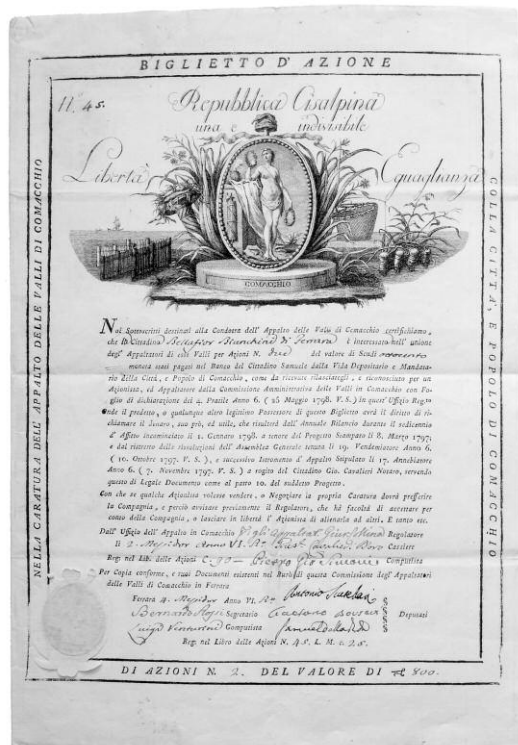 BIGLIETTO D'AZIONE
N.º 45.
Repubblica Cisalpina
una e indivisibile
Libertà Eguaglianza
NELLA CARATURA DELL' APPALTO DELLE VALLI DI COMACCHIO
COLLA CITTA', E POPOLO DI COMACCHIO
COMACCHIO
Noi Sottoscritti destinati alla Condotta dell' Appalto delle Valli di Comacchio certifichiamo,
che la Cittadina di Ferrara è interessata nell' unione
degl' Appaltatori di esse Valli per Azioni N. due del valore di Scudi
moneta stati pagati nel Banco del Cittadino Samuele dalla Vida Depositario e Mandata-
rio della Città, e Popolo di Comacchio, come da ricevute rilasciategli, e riconosciuto per un
Azionista, ed Appaltatore dalla Commissione Amministrativa delle Valli di Comacchio con Fo-
glio di dichiarazione del 4. Pratile Anno 6. (25 Maggio 1798. V. S.) in quest' Uffizio Reg.
Onde il predetto, o qualunque altro legittimo Possessore di questo Biglietto avrà il diritto di ri-
chiamare il suo pro, ed utile, che risulterà dall' Annuale Bilancio durante il sedicennio
d' Affitto incominciato il 1. Gennaro 1798. a tenore del Progetto Stampato li 8. Marzo 1797;
e dal ristretto delle Risoluzioni dell' Assemblea Generale tenuta li 19. Vendemiatore Anno 6.
(10. Ottobre 1797. V. S.), e successivo Istromento d' Appalto Stipulato li 17. Annebiatore
Anno 6. (7. Novembre 1797. V. S.) a rogito del Cittadino Gio. Cavalieri Notaro, servendo
questo di Legale Documento come al patto 10. del suddetto Progetto.
Con che se qualche Azionista volesse vendere, o Negoziare la propria Caratura dovrà preferire
la Compagnia, e perciò avvisare precisamente il Regolatore, che hà facoltà di accettare per
conto della Compagnia, o lasciare in libertà l' Azionista di alienarla ad altri. E tanto ec.
Dall' Uffizio dell' Appalto in Comacchio Regolatore
li 2. Messidor Anno VI. Caselere
Reg: nel Lib. delle Azioni C. 90 Computista
Per Copia conforme, e suoi Documenti esistenti nel Burò di questa Commissione degl' Appaltatori
delle Valli di Comacchio in Ferrara
Ferrara 4. Messidor Anno VI. Antonio
Bernardo Segretario Gaetano Deputati
Luigi Computista
Reg: nel Libro delle Azioni N. 45. L. M. c. 25.
DI AZIONI N. 2. DEL VALORE DI 800.